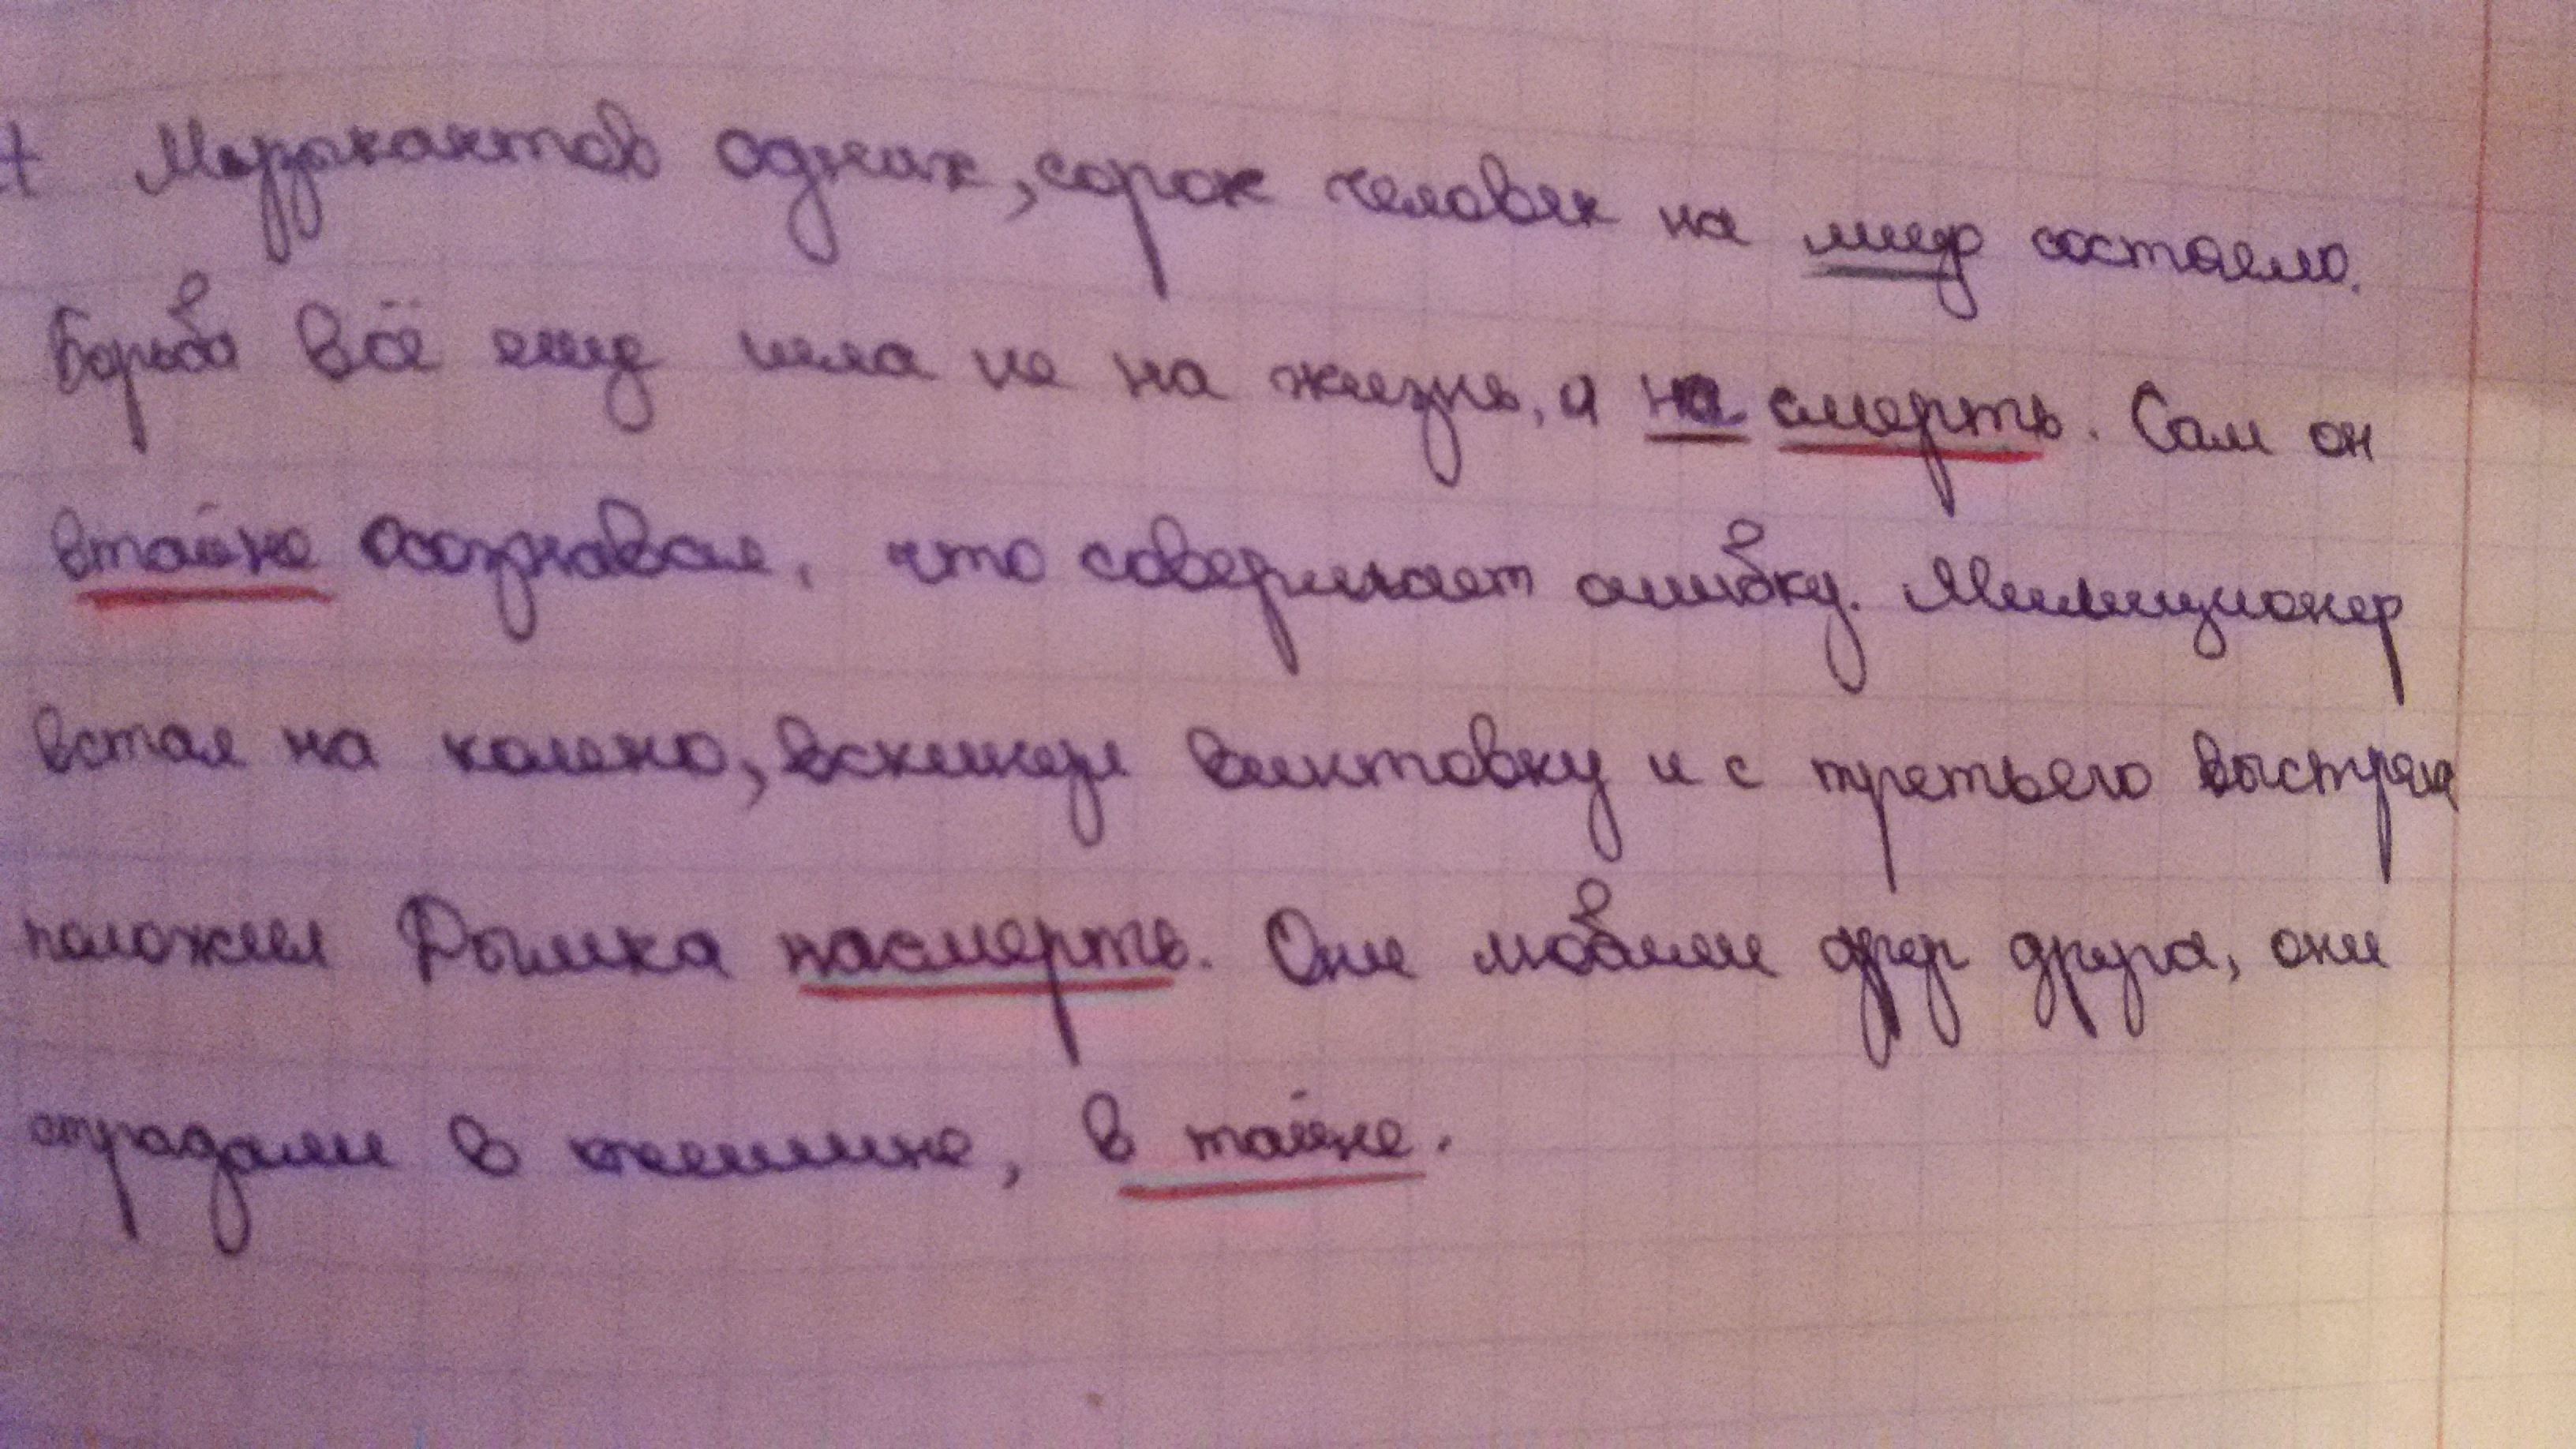 Музыкантов одних, сорок человек на лицо состояло.
Борьба всё еще шла не на жизнь, а на смерть. Сам он
втайне осознавал, что совершает ошибку. Милиционер
встал на колено, вскинул винтовку и с третьего выстрела
положил Дымка насмерть. Они любили друг друга, они
страдали в тишине, в тайне.